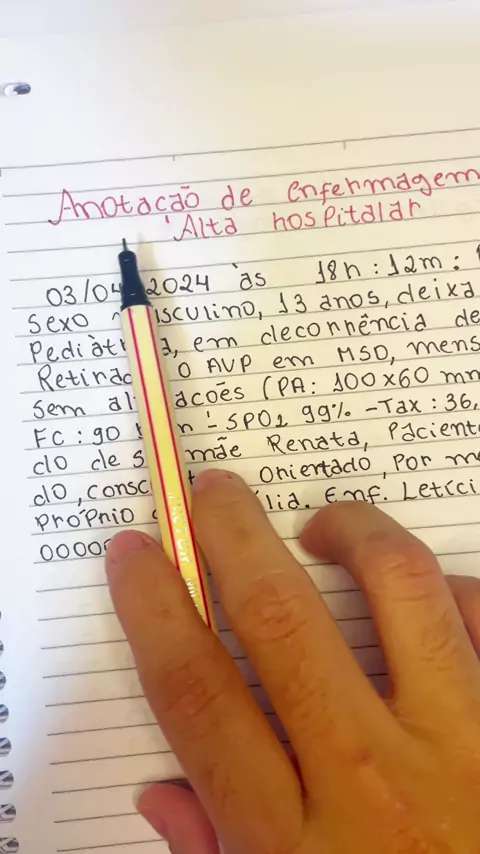 Anotação de enfermagem
Alta hospitalar
03/04 2024 às 18h : 12m :
Sexo masculino, 13 anos, deixa
Pediátria, em deconnência de
Retirado O AVP em MSD, mens
Sem alterações (PA: 100x60 mm
FC : 90 - SPO2 99% - Tax : 36,
do de sua mãe Renata, Paciente
do, Orientado, Por me
Próprio família. Enf. Letíci
0000